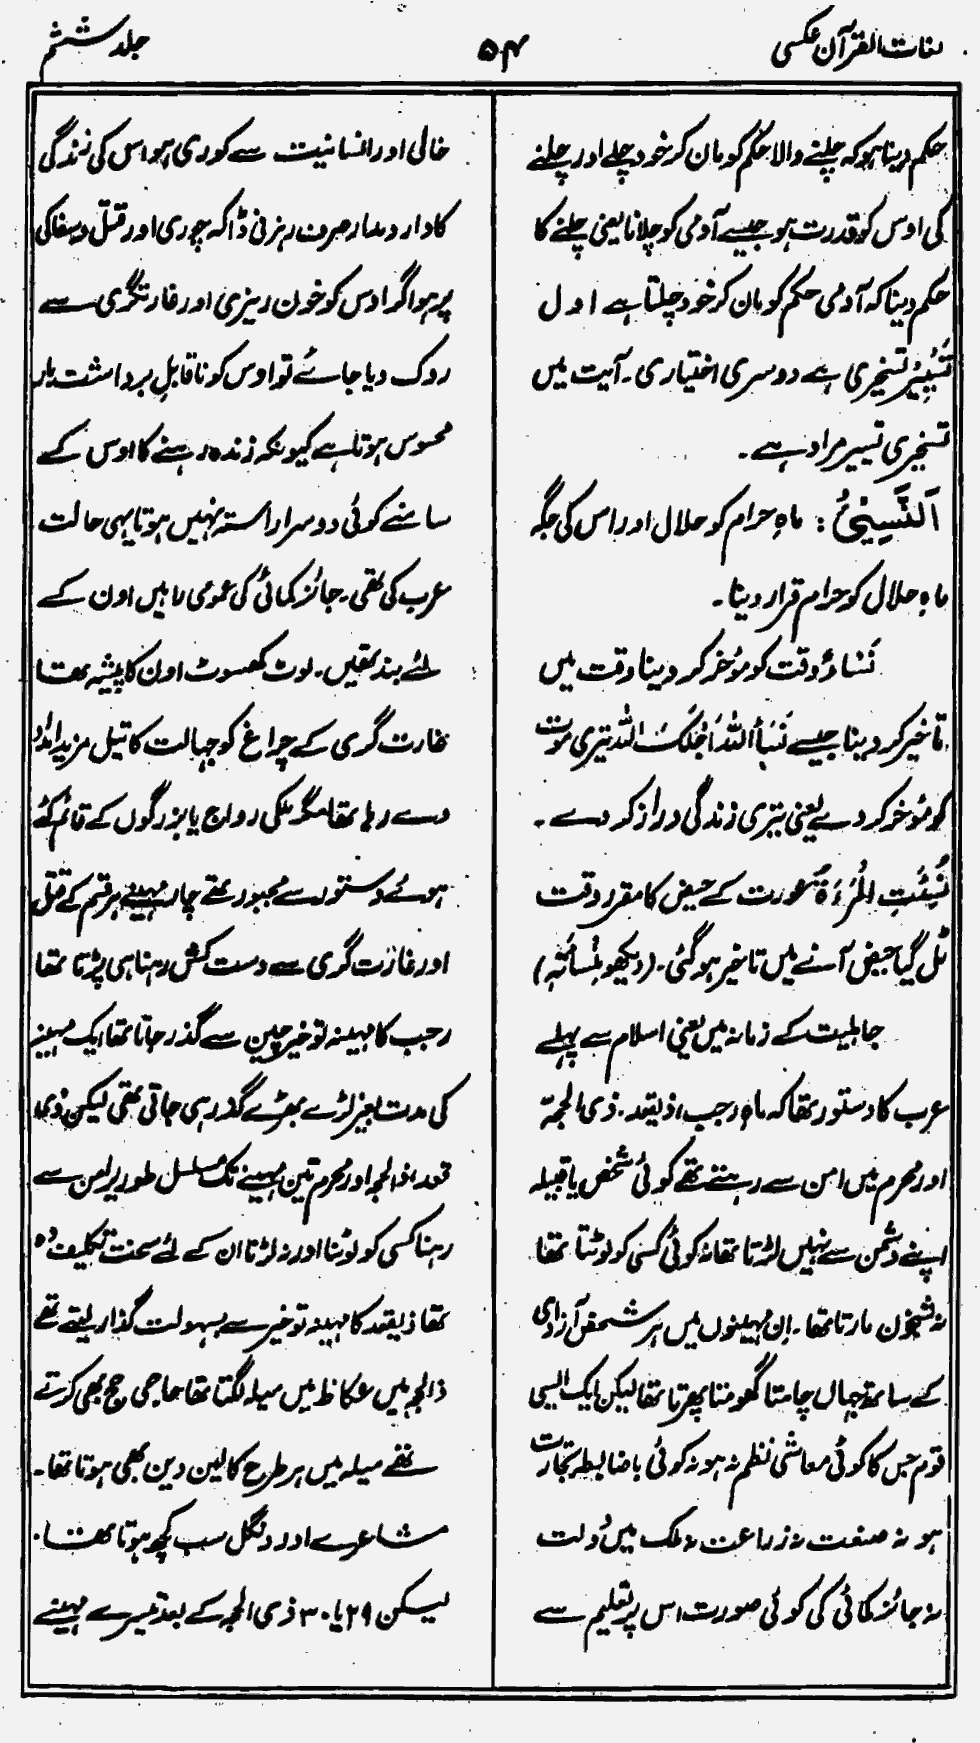 لغات القرآن عکسی
۵۴
جلد ششم
حکم دینا ہو کہ چلنے والا حکم کو مان کر خود چلے اور چلنے
کی اوس کو قدرت ہو جیسے آدمی کو چلانا یعنی چلنے کا
حکم دینا کہ آدمی حکم کو مان کر خود چلتا ہے اول
تَیْسِیْر تسخیری ہے دوسری اختیاری۔ آیت میں
تسخیری تیسیر مراد ہے۔
اَلنَّسِیْئُ : ماہِ حرام کو حلال اور اس کی جگہ
ماہِ حلال کو حرام قرار دینا۔
نَسَاءٌ وقت کو مؤخر کر دینا وقت میں
تاخیر کر دینا جیسے نَسَأَ اللہُ اَجَلَکَ اللہ تیری موت
کو مؤخر کر دے یعنی تیری زندگی دراز کر دے۔
نُسِئَتِ الْمَرْءَۃُ عورت کے حیض کا مقرر وقت
ٹل گیا حیض آنے میں تاخیر ہو گئی۔ (دیکھو مِنْسَأَتَہٗ)
جاہلیت کے زمانہ میں یعنی اسلام سے پہلے
عرب کا دستور تھا کہ ماہِ رجب، ذیقعد۔ ذی الحجہ
اور محرم میں امن سے رہتے تھے کوئی شخص یا قبیلہ
اپنے دشمن سے نہیں لڑتا تھا نہ کوئی کسی کو لوٹتا تھا
نہ شبخون مارتا تھا۔ اِن مہینوں میں ہر شخص آزادی
کے ساتھ جہاں چاہتا گھومتا پھرتا تھا لیکن ایک ایسی
قوم جس کا کوئی معاشی نظم نہ ہو نہ کوئی باضابطہ تجارت
ہو نہ صنعت نہ زراعت نہ ملک میں دولت
نہ جائز کمائی کی کوئی صورت اس پر تعلیم سے
خالی اور انسانیت سے کوری ہو اس کی زندگی
کا دار و مدار صرف رہزنی ڈاکہ چوری اور قتل و سفاکی
پر ہو اگر اوس کو خون ریزی اور غارتگری سے
روک دیا جائے تو اوس کو ناقابلِ برداشت بار
محسوس ہوتا ہے کیونکہ زندہ رہنے کا اوس کے
سامنے کوئی دوسرا راستہ نہیں ہوتا یہی حالت
عرب کی تھی۔ جائز کمائی کی عمومی راہیں اون کے
لئے بند تھیں۔ لوٹ کھسوٹ اون کا پیشہ تھا
غارت گری کے چراغ کو جہالت کا تیل مزید امداد
دے رہا تھا مگر ملکی رواج یا بزرگوں کے قائم کئے
ہوئے دستور سے مجبور تھے چار مہینے ہر قسم کے قتل
اور غارت گری سے دست کش رہنا ہی پڑتا تھا
رجب کا مہینہ تو خیر چین سے گذر جاتا تھا ایک مہینہ
کی مدت بغیر لڑے بھڑے گذر ہی جاتی تھی لیکن ذیقعد
ذالحجہ اور محرم تین مہینے تک مسلسل طور پر امن سے
رہنا کسی کو لوٹنا اور نہ لڑنا ان کے لئے سخت تکلیف دہ
تھا ذیقعد کا مہینہ تو خیر سے بسہولت گذار لیتے تھے
ذالحجہ میں عکاظ میں میلہ لگتا تھا حاجی حج بھی کرتے
تھے میلہ میں ہر طرح کا لین دین بھی ہوتا تھا۔
مشاعرے اور دنگل سب کچھ ہوتا تھا۔
لیکن ۲۹ یا ۳۰ ذی الحجہ کے بعد تیسرے مہینے